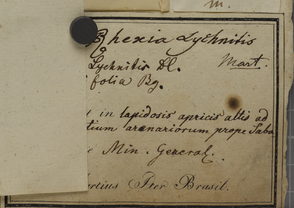 m.
Rhexia Lychnitis
Lychnitis Dl. Mart.
folia Bg.
t in lapidosis apricis altis ad
tium arenariorum prope Taba
Min. General.
rtius Iter Brasil.